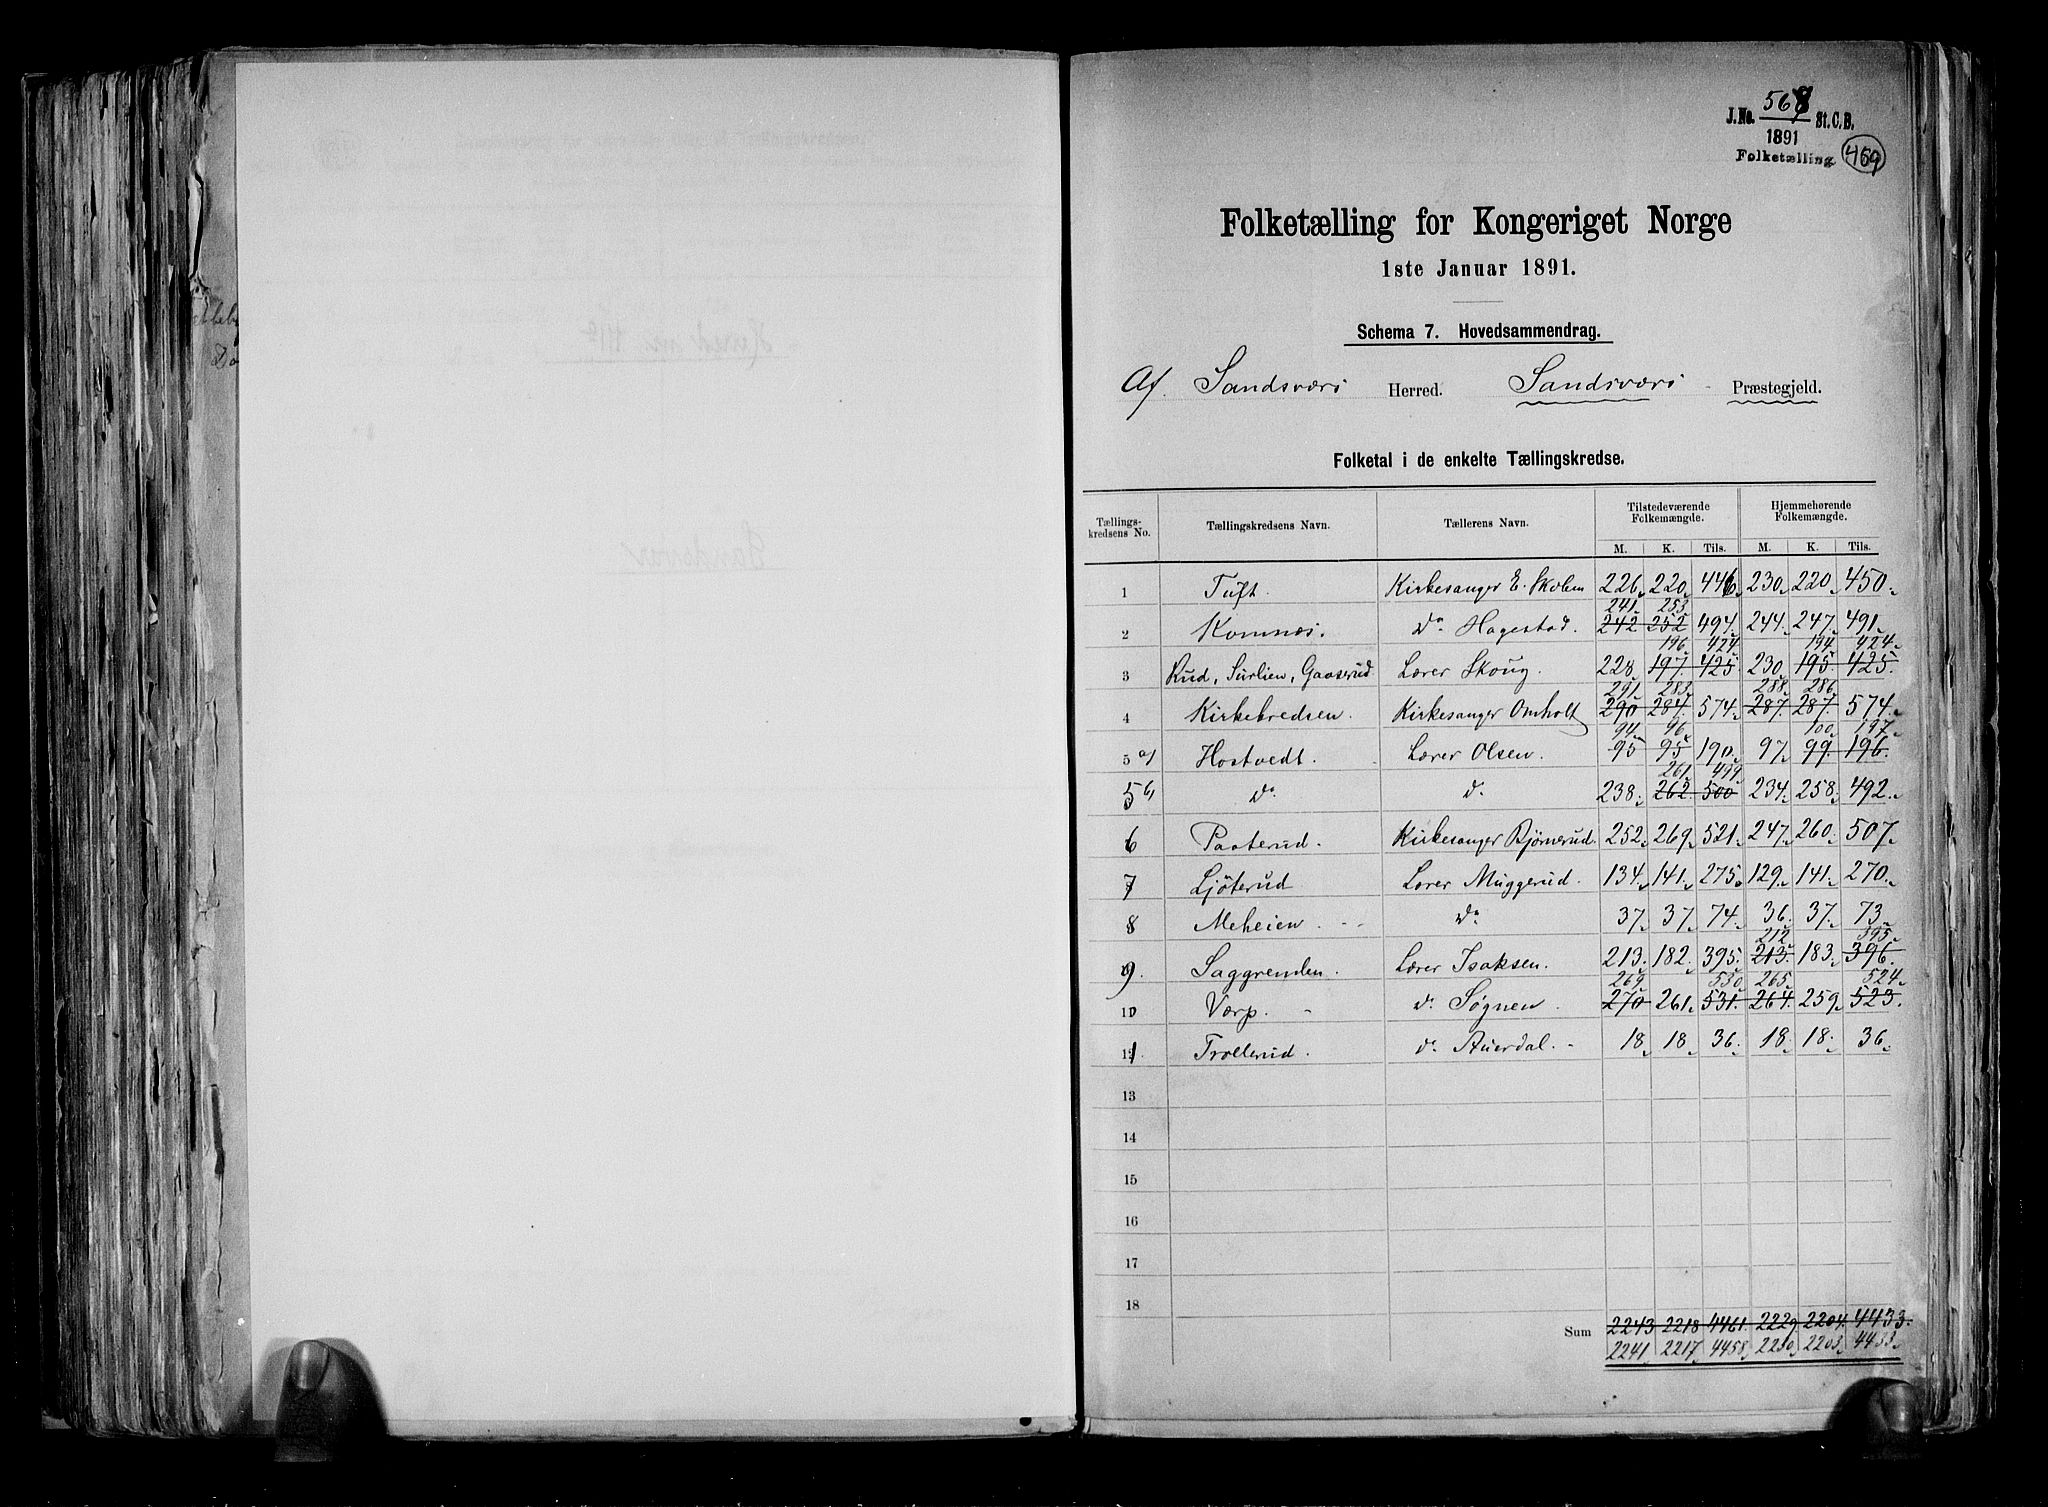 J.No. 569 St.C.B.
1891
Folketælling 459
Folketælling for Kongeriget Norge
1ste Januar 1891.
Schema 7. Hovedsammendrag.
Af Sandsværs Herred. Sandsværs Præstegjeld.
Folketal i de enkelte Tællingskredse.
Tællings-kredsens No. Tællingskredsens Navn. Tællerens Navn. Tilstedeværende Folkemængde. Hjemmehørende Folkemængde.
M. K. Tils. M. K. Tils.
1 Tuft. Kirkesanger E. 226 220 446 230 220 450
241 253
2 Komnæs. do Hagestad. 242 252 494 244 247 491
196 424 194 424
3 Rud, Surlien, Gaaserud Lærer Skoug. 228 197 425 230 195 425
291 283 288 286
4 Kirkekredsen. Kirkesanger Omholt 290 284 574 287 287 574
94 96 100 197
5 a) Hostvedt. Lærer Olsen. 95 95 190 97 99 196
261 499
5 b) do d. 238 262 500 234 258 492
6 Paaterud. Kirkesanger Bjørnerud. 252 269 521 247 260 507
7 Ljøterud Lærer Muggerud. 134 141 275 129 141 270
8 Meheien do 37 37 74 36 37 73
212 395
9 Saggrenden. Lærer Isaksen. 213 182 395 213 183 396
269 530 265 524
10 Værp. d. Søgnen 270 261 531 264 259 523
11 Trollerud. d. Auerdal. 18 18 36 18 18 36
13
14
15
16
17
18
Sum 2243 2218 4461 2229 2204 4433
2241 2217 4458 2230 2203 4433